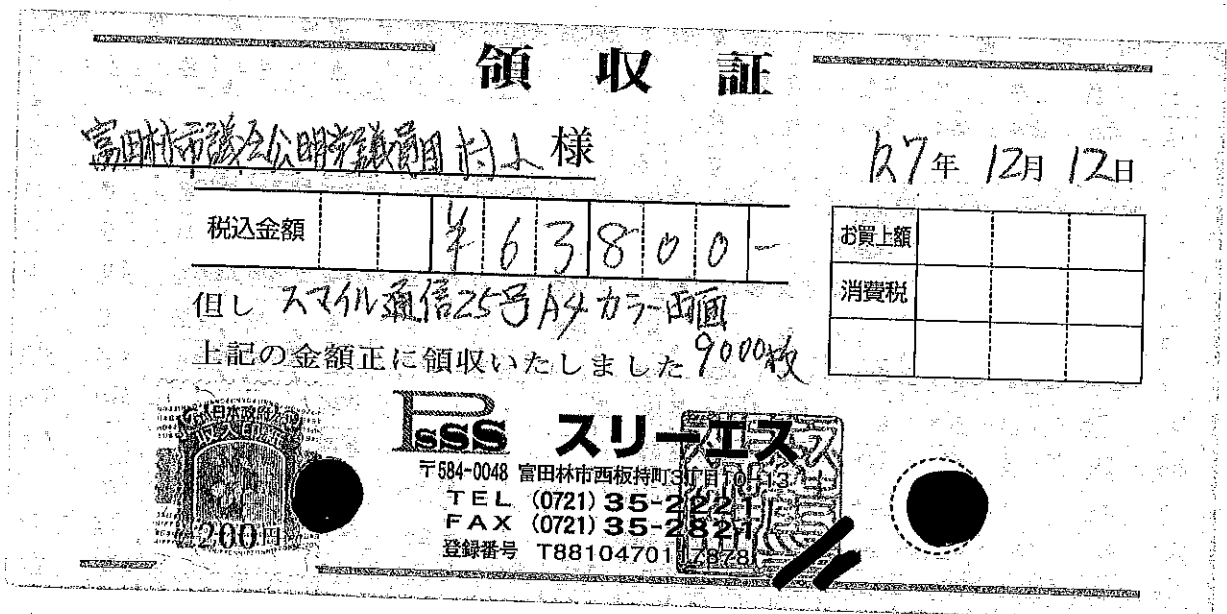 領収証
富田林市議会公明党議員団 村上 様
R7年 12月 12日
税込金額 ¥63800-
お買上額
消費税
但し スマイル通信25号 A4 カラー両面
9000枚
上記の金額正に領収いたしました
日本政府
収入印紙
200円
Psss スリーエス
〒584-0048 富田林市西板持町3丁目10-13
TEL (0721) 35-2221
FAX (0721) 35-2821
登録番号 T8810470117878